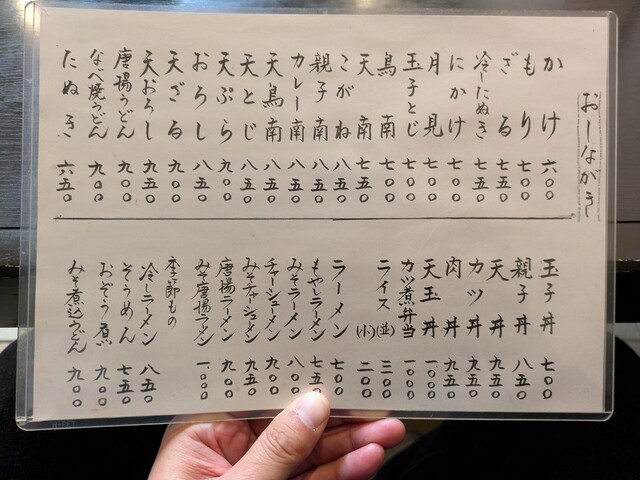 おしながき
かけ 六〇〇
もり 七〇〇
ざる 七五〇
冷したぬき 七五〇
にかけ 七〇〇
月見 七〇〇
玉子とじ 七〇〇
鳥南 七〇〇
天南 七五〇
こがね 八五〇
親子南 八五〇
カレー南 八五〇
天鳥南 八五〇
天とじ 八五〇
天ぷら 九〇〇
おろし 八五〇
天ざる 九〇〇
天おろし 九五〇
唐揚うどん 九〇〇
なべ焼うどん 九〇〇
たぬき 六五〇
玉子丼 七〇〇
親子丼 八五〇
天丼 九五〇
カツ丼 九五〇
肉丼 九五〇
天玉丼 一、〇〇〇
カツ煮弁当 一、〇〇〇
ライス (並) 三〇〇
(小) 二〇〇
ラーメン 七〇〇
もやしラーメン 七五〇
みそラーメン 八〇〇
チャーシューメン 九〇〇
みそチャーシューメン 九五〇
唐揚ラーメン 九〇〇
みそ唐揚ラーメン 一、〇〇〇
季節もの
冷しラーメン 八五〇
そうめん 七五〇
おぞう煮 九〇〇
みそ煮込うどん 九〇〇